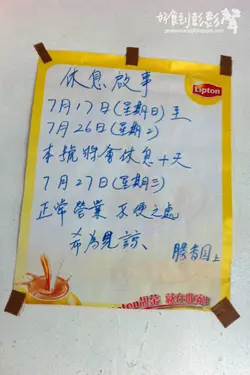 休息啟事
Lipton
7月17日(星期日)至
7月26日(星期2)
本號將會休息十天
7月27日(星期三)
正常營業 不便之處
希為見諒、
勝香園上
就在此刻!